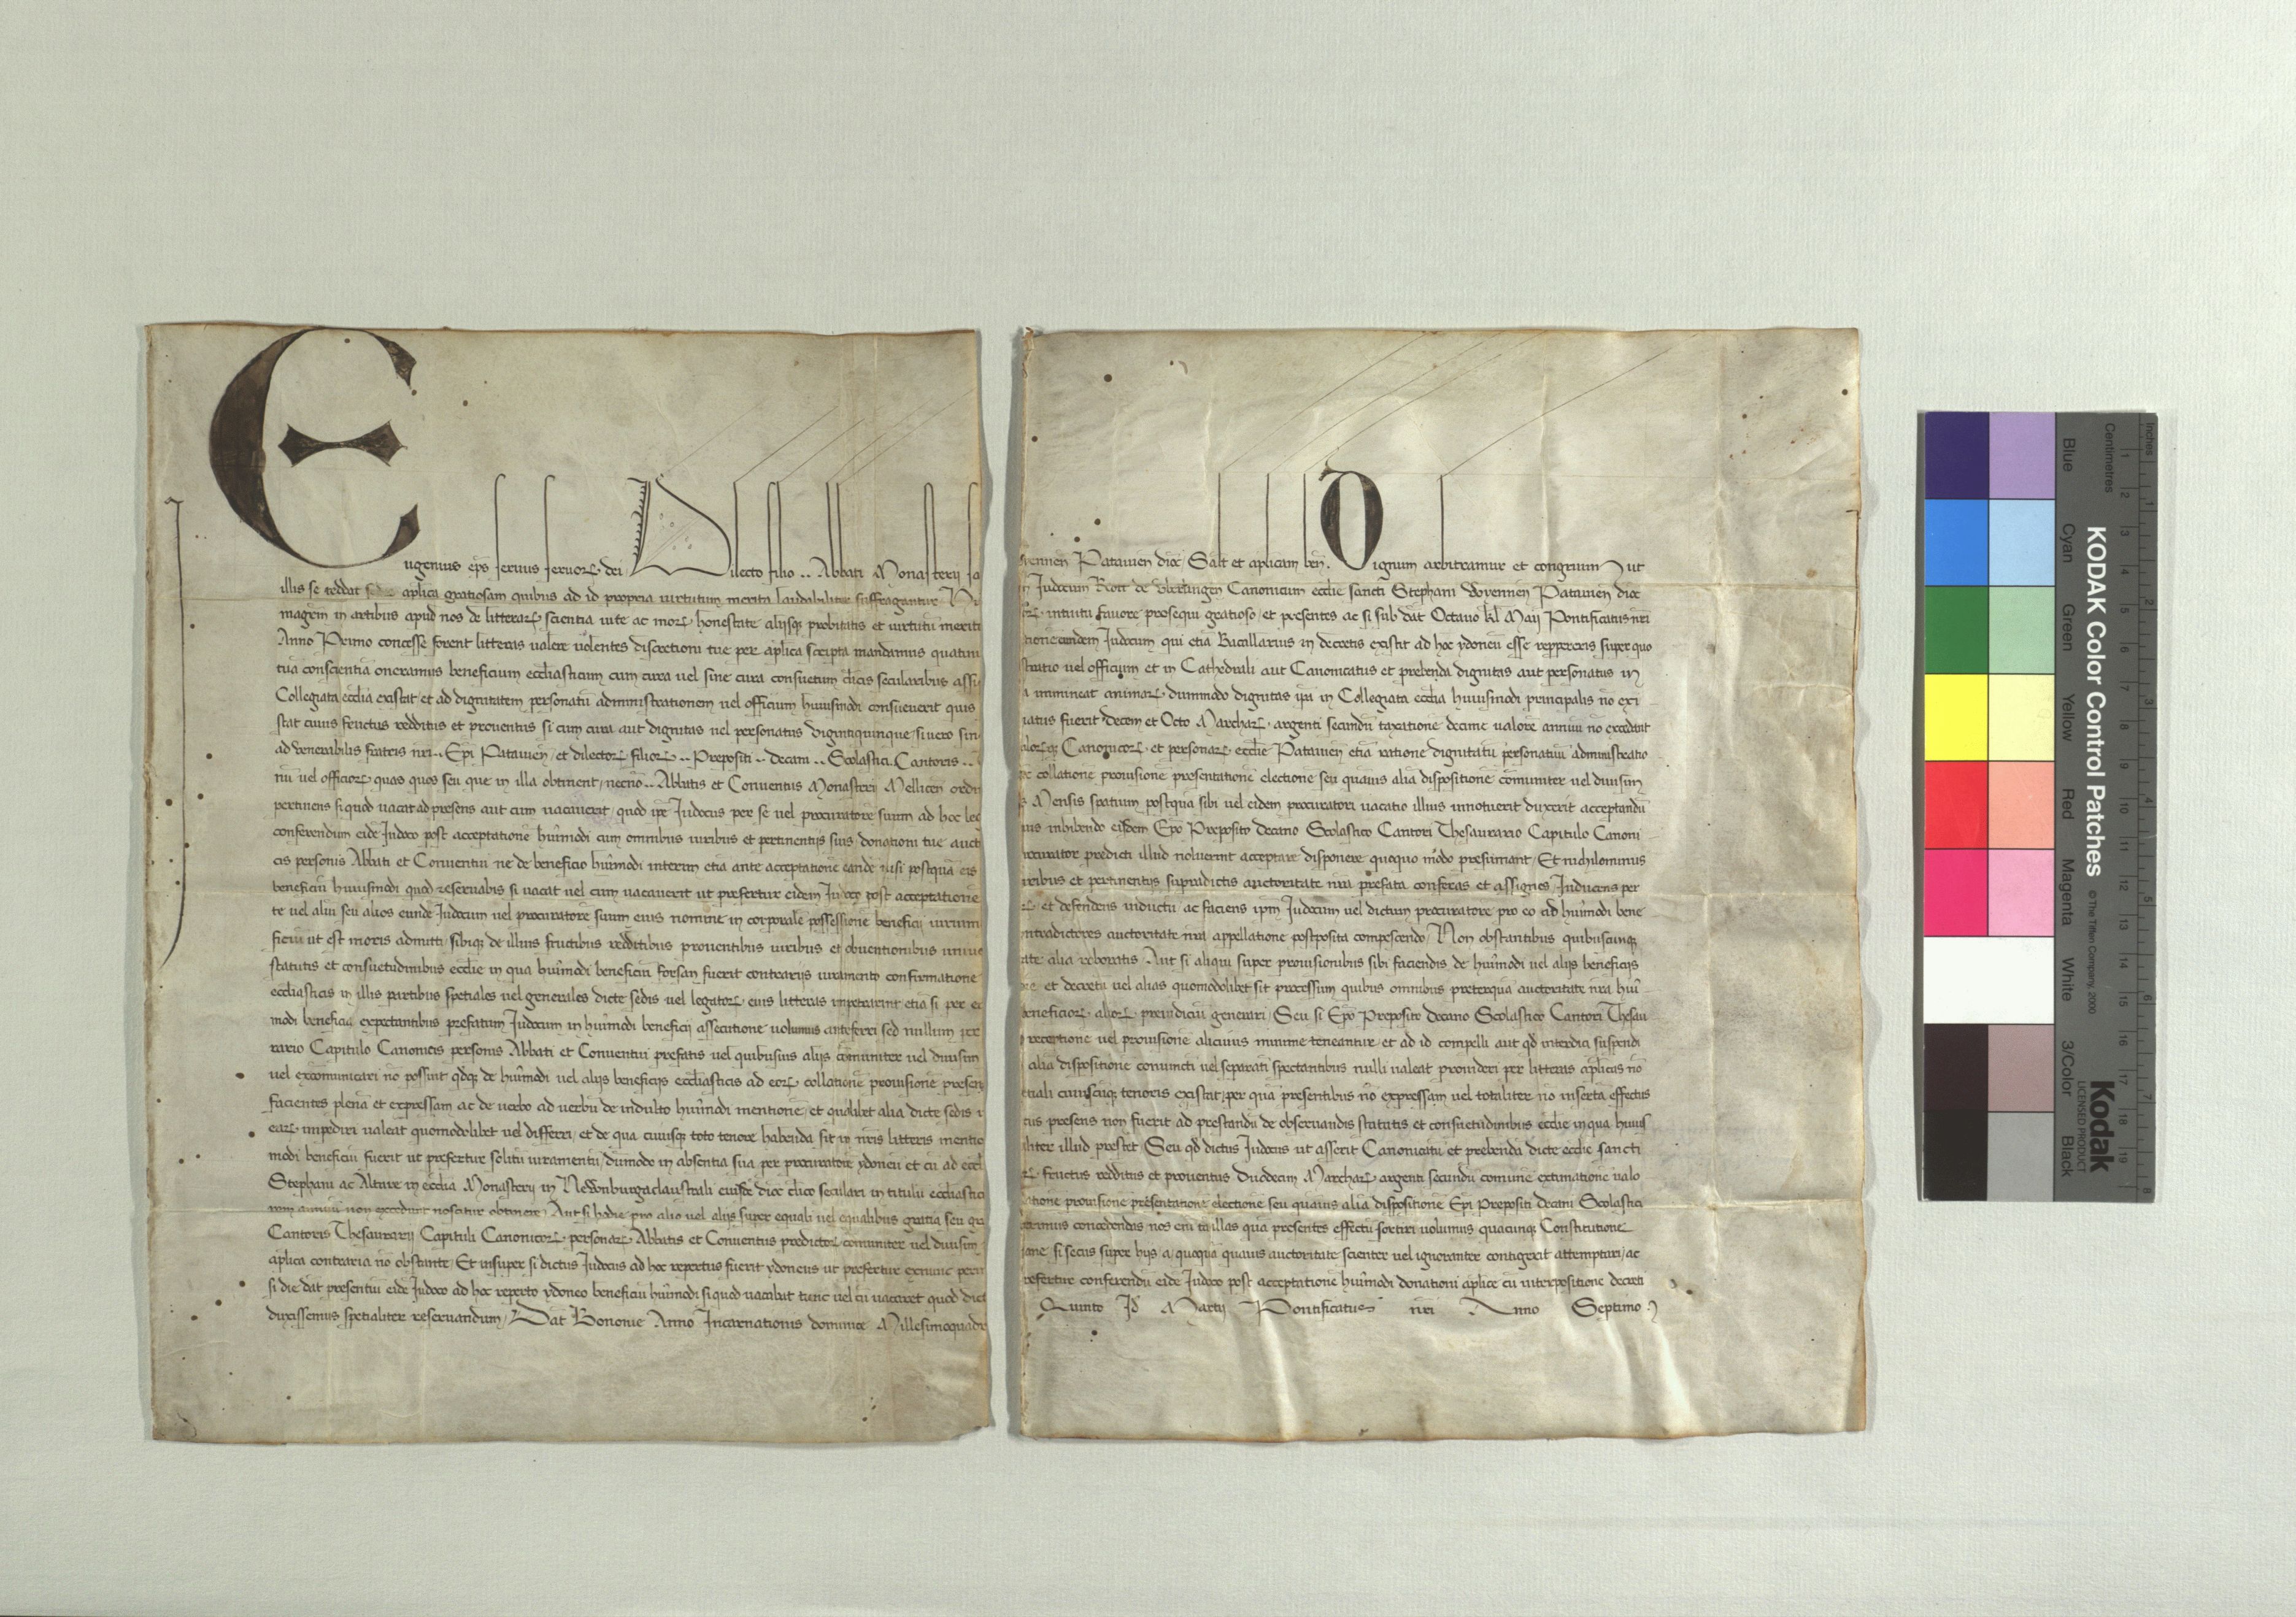 Eugenius ep̄s seruus seruoꝝ dei Dilecto filio .. Abbati Monasterij
illis se reddat aplica gratiosam quibus ad id propria uirtutum merita laudabiliter suffragantur
magr̄m in artibus apud nos de litteraꝝ scientia uite ac moꝝ honestate alijsqꝫ probitatis et uirtutū
Anno Primo concesse forent litteras ualere uolentes discretioni tue per ap̄lica scripta mandamus
tuā conscientiā oneramus beneficium eccl̄iasticum cum cura uel sine cura consuetum cl̄icis secularibus
Collegiata eccl̄ia existat et ad dignitatem personatū administrationem uel officium hmōi consueuerit quis
stat cuius fructus redditus et prouentus si cum cura aut dignitas uel personatus uigintiquinque si uero
ad uenerabilis fratris nr̄i .. Ep̄i Patauien̄ et dilectoꝝ filioꝝ .. Prepositi .. decani .. Scolastici Cantoris ..
nū uel officioꝝ quas quos seu que in illa obtinent necnō .. Abbatis et Conuentus Monasterij Mellicen̄
pertinens si quod uacat ad presens aut cum uacauerit quod ip̄e Iudocus per se uel procuratorē suum ad hoc
conferendum eidē Iudoco post acceptationē hūmodi cum omnibus iuribus et pertinentijs suis donationi tue
cis personis Abbati et Conuentui ne de beneficio hūmodi interim etiā ante acceptationē eandē nisi postquā eis
beneficiū huiusmodi quod reseruabis si uacat uel cum uacauerit ut prefertur eidem Iudoco post acceptationē
te uel aliū seu alios eundē Iudocum uel procuratorē suum eius nomine in corporalē possessionē beneficij
ficiū ut est moris admitti sibiqꝫ de illius fructibus redditibus prouentibus iuribus et obuentionibus
statutis et consuetudinibus eccl̄ie in qua hūmodi beneficiū forsan fuerit contrarijs iuramento confirmatione
eccl̄iasticis in illis partibus speciales uel generales dicte sedis uel legatoꝝ eius litteras impetrarint etiā si per
modi beneficia expectantibus prefatum Iudocum in hūmodi beneficij assecutione uolumus anteferri sed nullum
rario Capitulo Canonicis personis Abbati et Conuentui prefatis uel quibusuis alijs cōmuniter uel diuisim
uel excōmunicari nō possint qdqꝫ de hūmodi uel alijs beneficijs eccl̄iasticis ad eoꝝ collationē prouisionē
facientes plenā et expressam ac de uerbo ad uerbū de indulto hūmodi mentionē et qualibet alia dicte sedis
eaꝝ impediri ualeat quomodolibet uel differri et de qua cuiusqꝫ toto tenore habenda sit in nr̄is litteris
modi beneficiū fuerit ut prefertur solitū iuramentū dūmodo in absentia sua per procuratorē ydoneū et cū ad
Stephani ac Altare in eccl̄ia Monasterij in Newnburgaclaustrali eiusdē dioc̄ cl̄ico seculari in titulū
rem annuū non excedunt noscatur obtinere Aut si hodie pro alio uel alijs super equali uel equalibus gratia seu
Cantoris Thesaurarij Capituli Canonicoꝝ personaꝝ Abbatis et Conuentus predictoꝝ cōmuniter uel diuisim
ap̄lica contraria nō obstante Et insuper si dictus Iudocus ad hoc repertus fuerit ydoneus ut prefertur exnunc
si die dat̄ presentiū eidē Iudoco ad hoc reperto ydoneo beneficiū hūmodi si quod uacabat tunc uel cū uacaret quod
duxissemus specialiter reseruandum Dat̄ Bononie Anno Incarnationis dominice
Patauien̄ dioc̄ Salt̄ et aplicam ben̄. Dignum arbitramur et congruum ut
Iudocum Rott de Canonicum eccl̄ie sancti Stephani Patauien̄ dioc̄
intuitu fauore prosequi gratioso et presentes ac si sub dat̄ Octauo kl̄ Maij Pontificatus nr̄i
eundem Iudocum qui etiā Bacallarius in decretis existit ad hoc ydoneū esse reppereris super quo
uel officium et in Cathedrali aut Canonicatus et prebenda dignitas aut personatus in
immineat animaꝝ dummodo dignitas ip̄a in Collegiata eccl̄ia huiusmodi principalis nō exi
fuerit Decem et Octo Marchaꝝ argenti secundū taxationē decime ualorē annuū nō excedunt
Canonicoꝝ et personaꝝ eccl̄ie Patauien̄ etiā ratione dignitatū personatuū administratio
collationē prouisionē presentationē electionē seu quāuis aliā dispositionē cōmuniter uel diuisim
Mensis spatium postquā sibi uel eidem procuratori uacatio illius innotuerit duxerit acceptandū
inhibendo eisdem Ep̄o Preposito Decano Scolastico Cantori Thesaurario Capitulo Canoni
procurator predicti illud noluerint acceptare disponere quoquo modo presumant Et nichilominus
iuribus et pertinentijs supradictis auctoritate nr̄a prefata conferas et assignes Inducens per
et defendens inductū ac faciens ip̄m Iudocum uel dictum procuratorē pro eo ad hūmodi bene
contradictores auctoritate nr̄a appellatione postposita compescendo Non obstantibus quibuscunqꝫ
alia roboratis Aut si aliqui super prouisionibus sibi faciendis de hūmodi uel alijs beneficijs
et decretū uel alias quomodolibet sit processum quibus omnibus preterquā auctoritate nr̄a hū
beneficioꝝ alioꝝ preiudiciū generari Seu si Ep̄o Preposito Decano Scolastico Cantori Thesau
receptione uel prouisione alicuius minime teneantur et ad id compelli aut qd̄ interdici suspendi
alia dispositionē coniuncti uel separatī spectantibus nulli ualeat prouideri per litteras ap̄licas nō
cuiuscūqꝫ tenoris existat per quā presentibus nō expressam uel totaliter nō insertā effectus
presens non fuerit ad prestandū de obseruandis statutis et consuetudinibus eccl̄ie in qua huius
illud prestet Seu qd̄ dictus Iudocus ut asserit Canonicatū et prebendā dicte eccl̄ie sancti
fructus redditus et prouentus Duodecim Marchaꝝ argenti secundū comunē extimationē ualo
prouisionē presentationē electionē seu quāuis aliā dispositionē Ep̄i Prepositi Decani Scolastici
concedendas nos eni illas quā presentes effectū sortiri uolumus quacunqꝫ Constitutione
si secus super hijs a quoquā quauis auctoritate scienter uel ignoranter contigerit attemptari ac
prefertur conferendū eidē Iudoco post acceptationē hūmodi donationi ap̄lice cū interpositione decreti
Quinto Id̄ Martij Pontificatus nr̄i Anno Septimo
Inches
Centimetres
1 2 3 4 5 6 7 8
1 2 3 4 5 6 7 8 9 10 11 12 13 14 15 16 17 18 19
KODAK Color Control Patches
© The Tiffen Company, 2000
Kodak
LICENSED PRODUCT
Blue Cyan Green Yellow Red Magenta White 3/Color Black